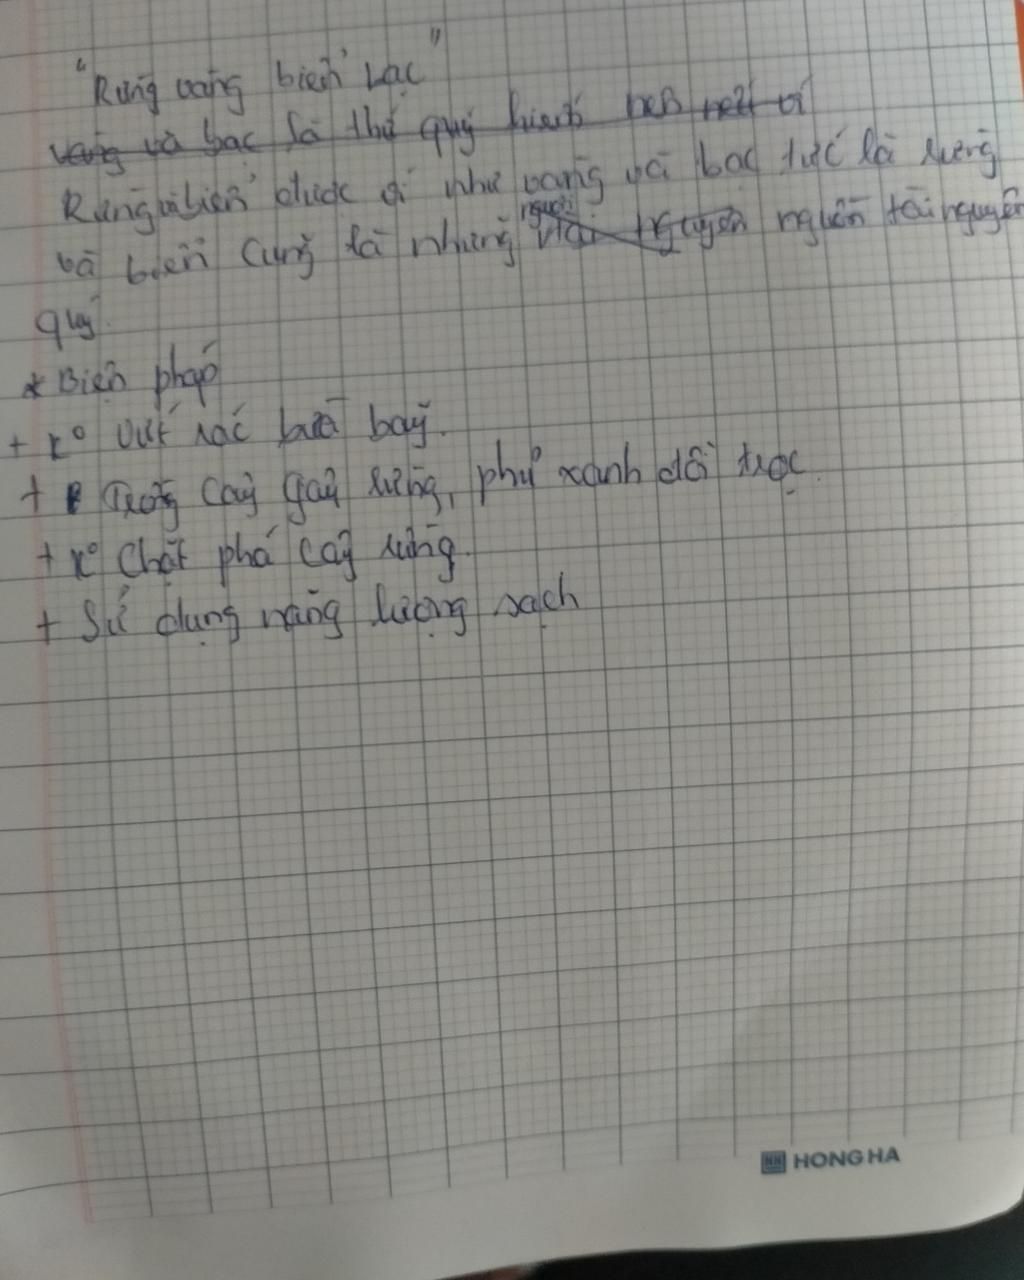 "Rừng vàng biển bạc"
vàng và bạc là thứ quý hiếm nên vì
Rừng và biển được ví như vàng và bạc tức là rừng
và biển cũng là những nguồn tài nguyên
quý.
* Biện pháp
+ kº vứt rác bừa bãy.
+ Trồng cây gây rừng, phủ xanh đồi trọc.
+ kº Chặt phá cây rừng.
+ Sử dụng năng lượng sạch
HONG HA